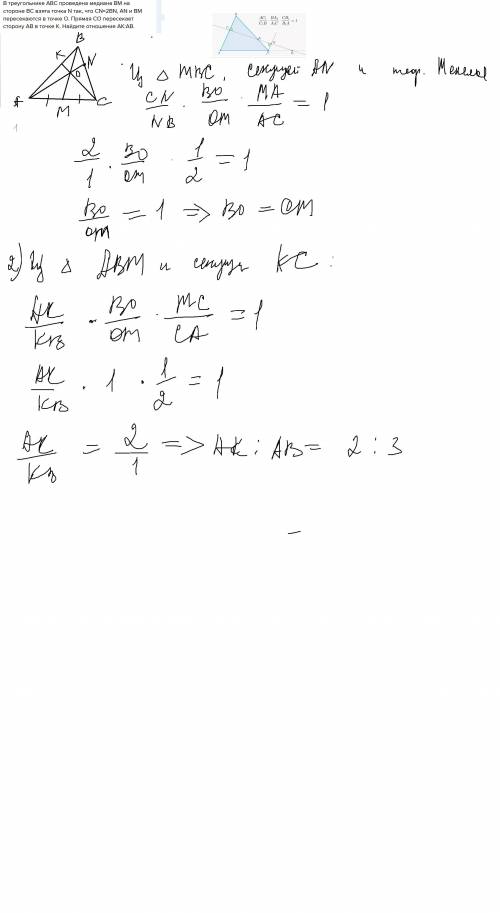 В треугольнике ABC проведена медиана BM на
стороне BC взята точка N так, что CN=2BN, AN и BM
пересекаются в точке O. Прямая CO пересекает
сторону AB в точке K. Найдите отношение AK:AB.
B
K
N
O
A
M
C
1
Из △ MBC, секущей AN и теор. Менелая
CN/NB · BO/OM · MA/AC = 1
2/1 · BO/OM · 1/2 = 1
BO/OM = 1 => BO = OM
2) Из △ ABM и секущ KC:
AK/KB · BO/OM · MC/CA = 1
AK/KB · 1 · 1/2 = 1
AK/KB = 2/1 => AK : AB = 2 : 3